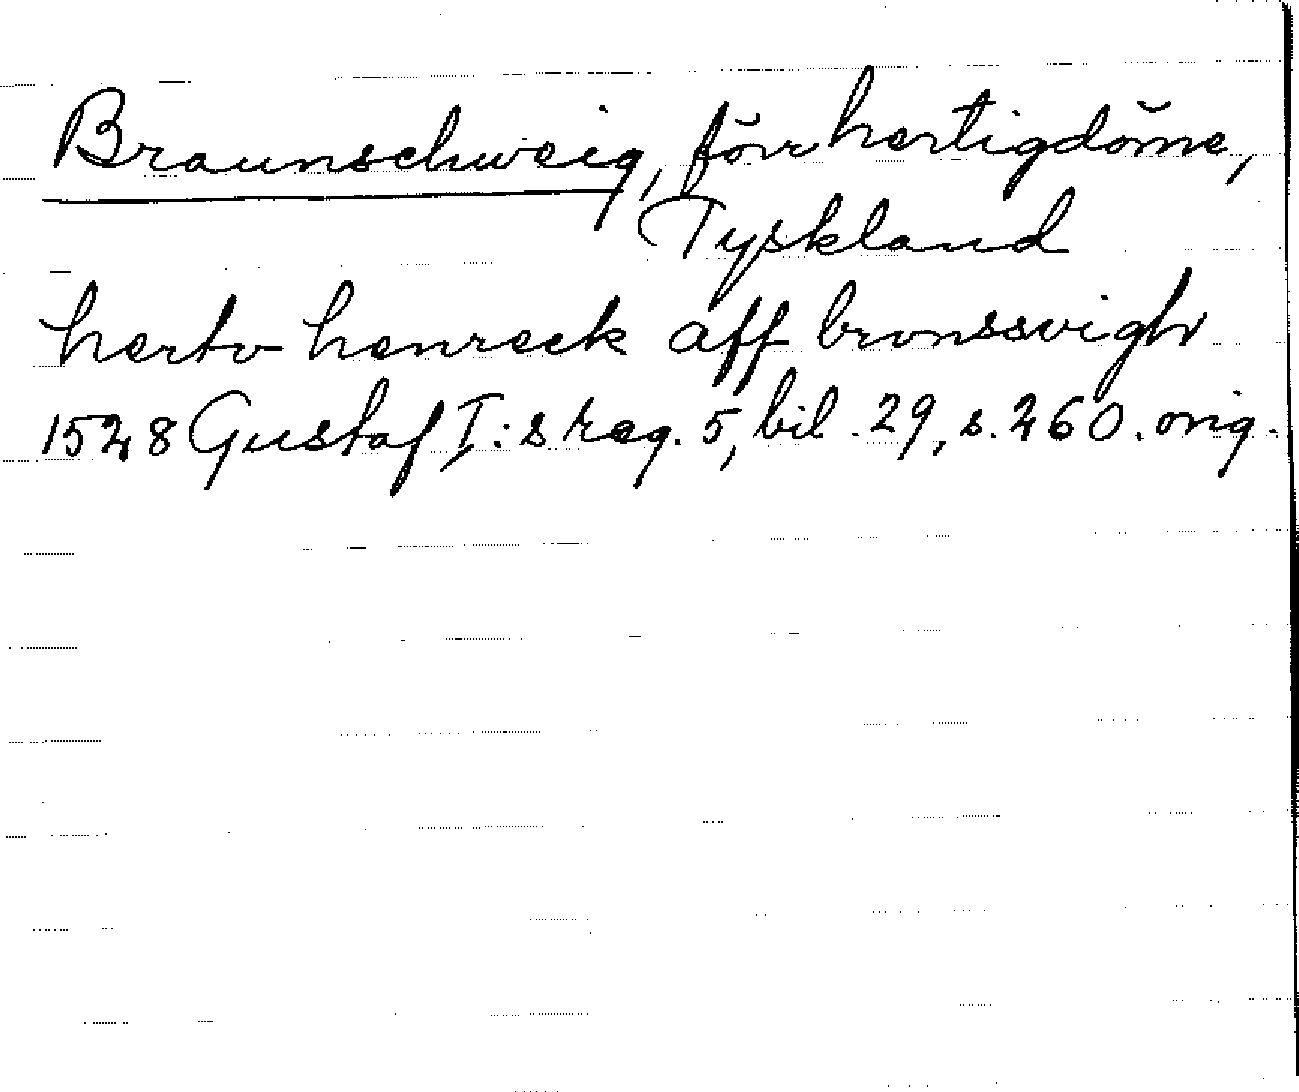 Braunschweig, förr hertigdöme,
Tyskland
hertv henreck aff brvnssvigh
1528 Gustaf I:s reg. 5, bil. 29, s. 260. orig.